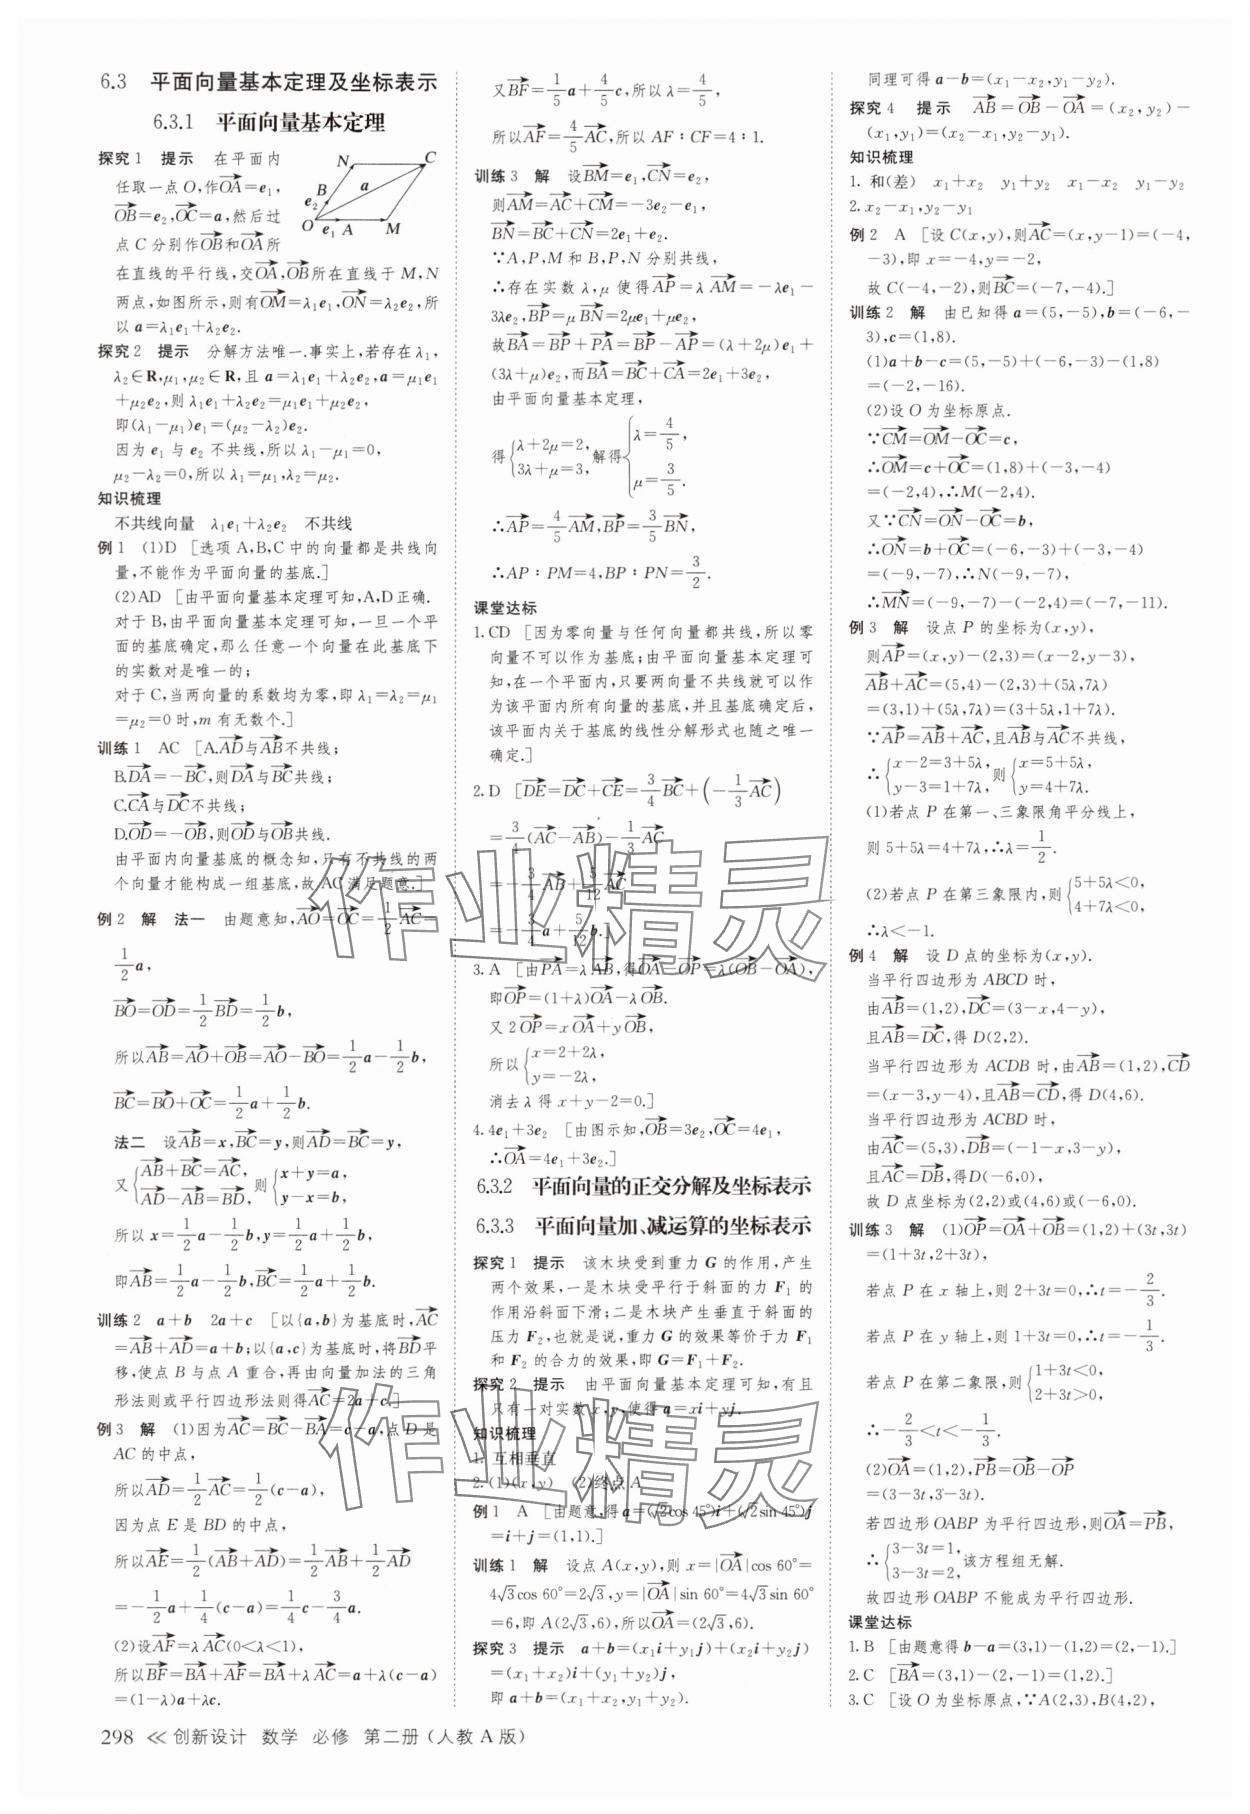 6.3 平面向量基本定理及坐标表示
6.3.1 平面向量基本定理
探究1 提示 在平面内
任取一点O,作OA=e₁,
OB=e₂,OC=a,然后过
点C分别作OB和OA所
在直线的平行线,交OA,OB所在直线于M,N
两点,如图所示,则有OM=λ₁e₁,ON=λ₂e₂,所
以a=λ₁e₁+λ₂e₂.
N C B a e₂ O e₁ A M
探究2 提示 分解方法唯一.事实上,若存在λ₁,
λ₂∈R,μ₁,μ₂∈R,且a=λ₁e₁+λ₂e₂,a=μ₁e₁
+μ₂e₂,则λ₁e₁+λ₂e₂=μ₁e₁+μ₂e₂,
即(λ₁-μ₁)e₁=(μ₂-λ₂)e₂.
因为e₁与e₂不共线,所以λ₁-μ₁=0,
μ₂-λ₂=0,所以λ₁=μ₁,λ₂=μ₂.
知识梳理
不共线向量 λ₁e₁+λ₂e₂ 不共线
例1 (1)D [选项A,B,C中的向量都是共线向
量,不能作为平面向量的基底.]
(2)AD [由平面向量基本定理可知,A,D正确.
对于B,由平面向量基本定理可知,一旦一个平
面的基底确定,那么任意一个向量在此基底下
的实数对是唯一的;
对于C,当两向量的系数均为零,即λ₁=λ₂=μ₁
=μ₂=0时,m有无数个.]
训练1 AC [A.AD与AB不共线;
B.DA=-BC,则DA与BC共线;
C.CA与DC不共线;
D.OD=-OB,则OD与OB共线.
由平面内向量基底的概念知,只有不共线的两
个向量才能构成一组基底,故AC满足题意.]
例2 解 法一 由题意知,AO=OC=1/2AC=
1/2a,
BO=OD=1/2BD=1/2b,
所以AB=AO+OB=AO-BO=1/2a-1/2b,
BC=BO+OC=1/2a+1/2b.
法二 设AB=x,BC=y,则AD=BC=y,
又{AB+BC=AC, AD-AB=BD, 则{x+y=a, y-x=b,
所以x=1/2a-1/2b,y=1/2a+1/2b,
即AB=1/2a-1/2b,BC=1/2a+1/2b.
训练2 a+b 2a+c [以{a,b}为基底时,AC
=AB+AD=a+b;以{a,c}为基底时,将BD平
移,使点B与点A重合,再由向量加法的三角
形法则或平行四边形法则得AC=2a+c.]
例3 解 (1)因为AC=BC-BA=c-a,点D是
AC的中点,
所以AD=1/2AC=1/2(c-a),
因为点E是BD的中点,
所以AE=1/2(AB+AD)=1/2AB+1/2AD
=-1/2a+1/4(c-a)=1/4c-3/4a.
(2)设AF=λAC(0<λ<1),
所以BF=BA+AF=BA+λAC=a+λ(c-a)
=(1-λ)a+λc.
又BF=1/5a+4/5c,所以λ=4/5,
所以AF=4/5AC,所以AF∶CF=4∶1.
训练3 解 设BM=e₁,CN=e₂,
则AM=AC+CM=-3e₂-e₁,
BN=BC+CN=2e₁+e₂.
∵A,P,M和B,P,N分别共线,
∴存在实数λ,μ使得AP=λAM=-λe₁-
3λe₂,BP=μBN=2μe₁+μe₂,
故BA=BP+PA=BP-AP=(λ+2μ)e₁+
(3λ+μ)e₂,而BA=BC+CA=2e₁+3e₂,
由平面向量基本定理,
得{λ+2μ=2, 3λ+μ=3, 解得{λ=4/5, μ=3/5.
∴AP=4/5AM,BP=3/5BN,
∴AP∶PM=4,BP∶PN=3/2.
课堂达标
1.CD [因为零向量与任何向量都共线,所以零
向量不可以作为基底;由平面向量基本定理可
知,在一个平面内,只要两向量不共线就可以作
为该平面内所有向量的基底,并且基底确定后,
该平面内关于基底的线性分解形式也随之唯一
确定.]
2.D [DE=DC+CE=3/4BC+(-1/3AC)
=3/4(AC-AB)-1/3AC
=-3/4AB+5/12AC
=-3/4a+5/12b.]
3.A [由PA=λAB,得OA-OP=λ(OB-OA),
即OP=(1+λ)OA-λOB.
又2OP=xOA+yOB,
所以{x=2+2λ, y=-2λ,
消去λ得x+y-2=0.]
4.4e₁+3e₂ [由图示知,OB=3e₂,OC=4e₁,
∴OA=4e₁+3e₂.]
6.3.2 平面向量的正交分解及坐标表示
6.3.3 平面向量加、减运算的坐标表示
探究1 提示 该木块受到重力G的作用,产生
两个效果,一是木块受平行于斜面的力F₁的
作用沿斜面下滑;二是木块产生垂直于斜面的
压力F₂,也就是说,重力G的效果等价于力F₁
和F₂的合力的效果,即G=F₁+F₂.
探究2 提示 由平面向量基本定理可知,有且
只有一对实数x,y,使得a=xi+yj.
知识梳理
1.互相垂直
2.(1)(x,y) (2)终点A
例1 A [由题意,得a=(√2cos 45°)i+(√2sin 45°)j
=i+j=(1,1).]
训练1 解 设点A(x,y),则x=|OA|cos 60°=
4√3cos 60°=2√3,y=|OA|sin 60°=4√3sin 60°
=6,即A(2√3,6),所以OA=(2√3,6).
探究3 提示 a+b=(x₁i+y₁j)+(x₂i+y₂j)
=(x₁+x₂)i+(y₁+y₂)j,
即a+b=(x₁+x₂,y₁+y₂).
同理可得a-b=(x₁-x₂,y₁-y₂).
探究4 提示 AB=OB-OA=(x₂,y₂)-
(x₁,y₁)=(x₂-x₁,y₂-y₁).
知识梳理
1.和(差) x₁+x₂ y₁+y₂ x₁-x₂ y₁-y₂
2.x₂-x₁,y₂-y₁
例2 A [设C(x,y),则AC=(x,y-1)=(-4,
-3),即x=-4,y=-2,
故C(-4,-2),则BC=(-7,-4).]
训练2 解 由已知得a=(5,-5),b=(-6,-
3),c=(1,8).
(1)a+b-c=(5,-5)+(-6,-3)-(1,8)
=(-2,-16).
(2)设O为坐标原点.
∵CM=OM-OC=c,
∴OM=c+OC=(1,8)+(-3,-4)
=(-2,4),∴M(-2,4).
又∵CN=ON-OC=b,
∴ON=b+OC=(-6,-3)+(-3,-4)
=(-9,-7),∴N(-9,-7),
∴MN=(-9,-7)-(-2,4)=(-7,-11).
例3 解 设点P的坐标为(x,y),
则AP=(x,y)-(2,3)=(x-2,y-3),
AB+AC=(5,4)-(2,3)+(5λ,7λ)
=(3,1)+(5λ,7λ)=(3+5λ,1+7λ).
∵AP=AB+AC,且AB与AC不共线,
∴{x-2=3+5λ, y-3=1+7λ, 则{x=5+5λ, y=4+7λ.
(1)若点P在第一、三象限角平分线上,
则5+5λ=4+7λ,∴λ=1/2.
(2)若点P在第三象限内,则{5+5λ<0, 4+7λ<0,
∴λ<-1.
例4 解 设D点的坐标为(x,y).
当平行四边形为ABCD时,
由AB=(1,2),DC=(3-x,4-y),
且AB=DC,得D(2,2).
当平行四边形为ACDB时,由AB=(1,2),CD
=(x-3,y-4),且AB=CD,得D(4,6).
当平行四边形为ACBD时,
由AC=(5,3),DB=(-1-x,3-y),
且AC=DB,得D(-6,0).
故D点坐标为(2,2)或(4,6)或(-6,0).
训练3 解 (1)OP=OA+OB=(1,2)+(3t,3t)
=(1+3t,2+3t),
若点P在x轴上,则2+3t=0,∴t=-2/3.
若点P在y轴上,则1+3t=0,∴t=-1/3.
若点P在第二象限,则{1+3t<0, 2+3t>0,
∴-2/3<t<-1/3.
(2)OA=(1,2),PB=OB-OP
=(3-3t,3-3t).
若四边形OABP为平行四边形,则OA=PB,
∴{3-3t=1, 3-3t=2, 该方程组无解.
故四边形OABP不能成为平行四边形.
课堂达标
1.B [由题意得b-a=(3,1)-(1,2)=(2,-1).]
2.C [BA=(3,1)-(2,-1)=(1,2).]
3.C [设O为坐标原点,∵A(2,3),B(4,2),
298 ≪ 创新设计 数学 必修 第二册(人教A版)
作业精灵
作业精灵